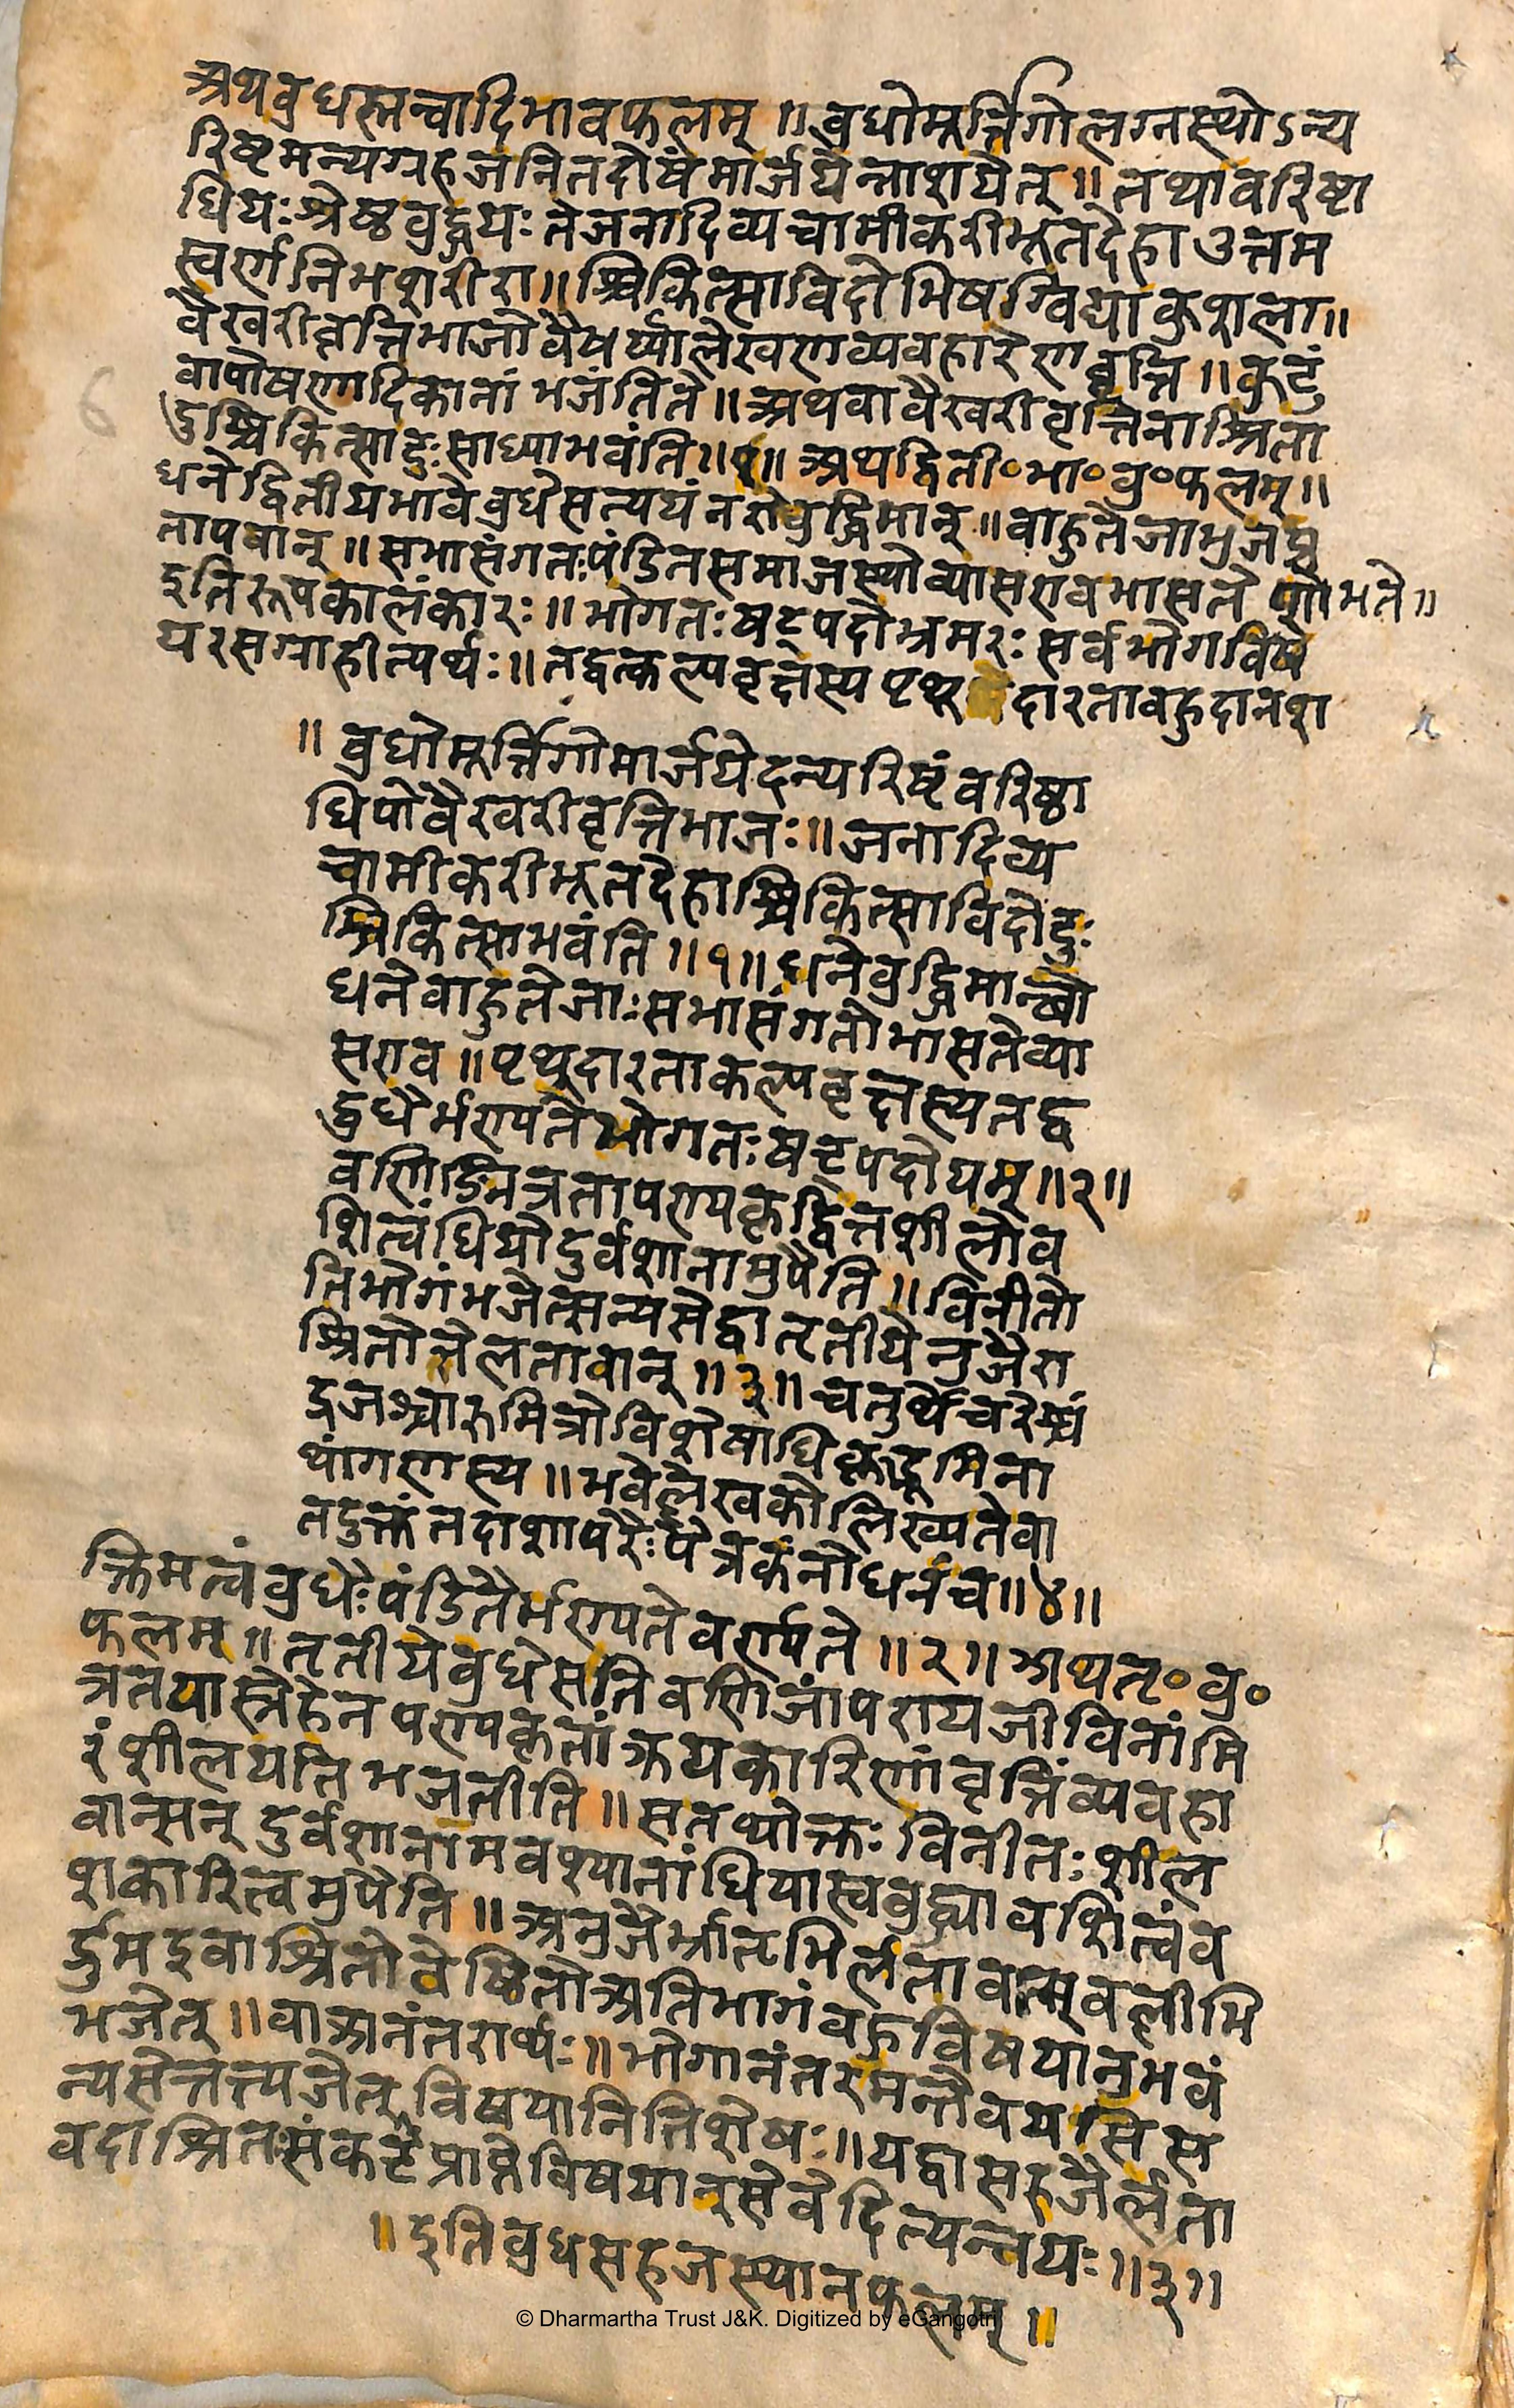 अथबुधस्तन्वादिभावफलम् ॥ बुधोमूर्त्तिगोलग्नस्थोऽन्य
रिष्टमन्यग्रहजनितदोषंमार्जयेन्नाशयेत् ॥ तथावरिष्टा
धियःश्रेष्ठबुद्धयः तेजनादिव्यचामीकरीभूतदेहाउत्तम
स्वर्णनिभशरीरा ॥ श्चिकित्साविदोभिषग्विद्याकुशला ॥
वैखरीवृत्तिभाजो लेखणव्यवहारेणवृत्ति ॥ कुटुं
वापोषणादिकानां भजंतिते ॥ अथवावैखरीवृत्तिनाश्रिता
दुश्चिकित्सादुःसाध्याभवंति ॥१॥ अथद्विती॰भा॰बु॰फलम् ॥
धनेद्वितीयभावेबुधेसत्ययंनरोबुद्धिमान् ॥ बाहुतेजाभुजप्र
तापवान् ॥ सभासंगतःपंडितसमाजस्थोव्यासएवभासते शोभते ॥
इतिरूपकालंकारः ॥ भोगतःषट्पदोभ्रमरः सर्वभोगविष
यरसग्राहीत्यर्थः ॥ तद्वत्कल्पवृक्षस्य पृथू दारताबहुदानश
॥ बुधोमूर्त्तिगोमार्जयेदन्यरिष्टंवरिष्ठा
धियोवैखरीवृत्तिभाजः ॥ जनादिव्य
चामीकरीभूतदेहाश्चिकित्साविदोदुः
श्चिकित्साभवंति ॥१॥ धनेबुद्धिमान्बो
धनेबाहुतेजाःसभासंगतोभासतेव्या
सएव ॥ पृथूदारताकल्पवृक्षस्यतद्व
द्बुधैर्भण्यतेभोगतःषट्पदोयम् ॥२॥
वणिङ्मित्रतापण्यकृद्वित्तशीलोव
शित्वंधियोदुर्वशानामुपैति ॥ विनीतो
तिभोगंभजेत्सन्यसेद्वातृतीयेनुजैरा
श्रितोज्ञेलतावान् ॥३॥ चतुर्थेचरेश्चं
द्रजश्चारुमित्रोविशेषाधिकृद्भूमिना
थांगणस्य ॥ भवेल्लेखकोलिख्यतेवा
तदुक्तंतदाशापरैःपैत्रकंनोधनंच ॥४॥
क्तिमत्वंबुधैःपंडितैर्भण्यतेवर्ण्यते ॥२॥ अथतृ॰बु॰
फलम् ॥ तृतीयेबुधेसतिवणिजांपण्यजीविनांमि
त्रतयास्नेहेनपण्यकृतांक्रयकारिणांवृत्तिंव्यवहा
रंशीलयतिभजतीति ॥ सतथोक्तःविनीतःशील
वान्सन् दुर्वशानामवश्यानांधियास्वबुद्ध्यावशित्वंव
शकारित्वमुपैति ॥ अनुजैर्भ्रातृभिर्लतावत्सुवल्लीभि
र्द्रुमइवाश्रितोवेष्ठितोअतिभोगंबहुविषयानुभवं
भजेत् ॥ वाअनंतरार्थः ॥ भोगानंतरमन्तेवयसिस
न्यसेत्तत्यजेत् विषयानितिशेषः ॥ यद्वासहजैर्लता
वदाश्रितःसंकटेप्राप्तेविषयान्सेवेदित्यन्वयः ॥३॥
॥ इतिबुधसहजस्थानफलम् ॥
© Dharmartha Trust J&K. Digitized by eGangotri